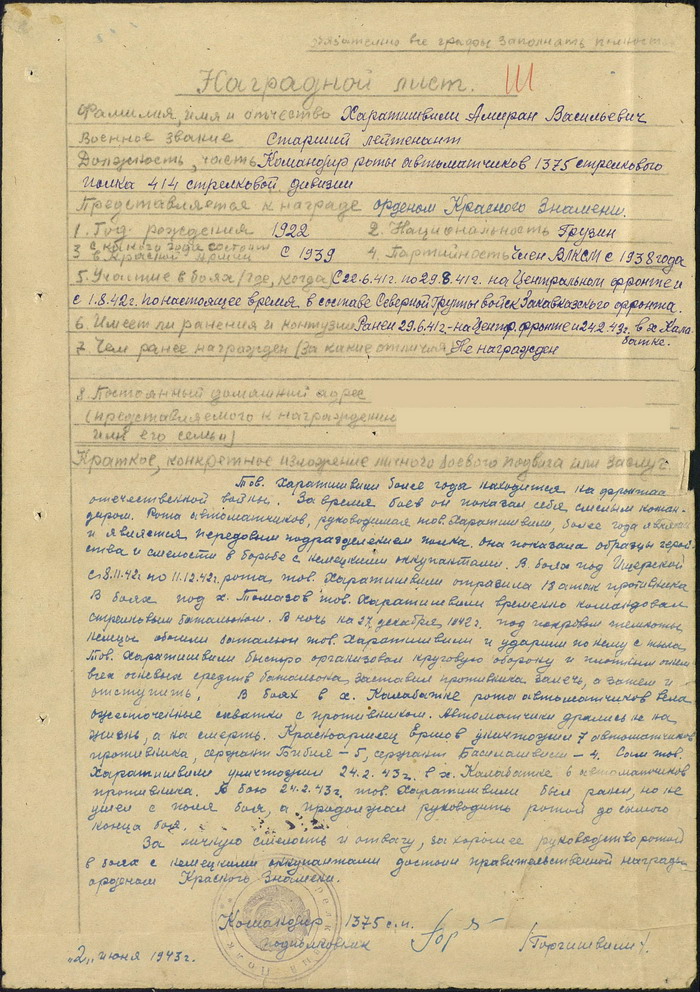 Обязательно все графы заполнять полностью
Наградной лист. III
Фамилия, имя и отчество Харатишвили Амиран Васильевич
Военное звание Старший лейтенант
Должность, часть Командир роты автоматчиков 1375 стрелкового
полка 414 стрелковой дивизии
Представляется к награде орденом Красного Знамени.
1. Год рождения 1922 2. Национальность Грузин
3 с какого года состоит
в Красной Армии С 1939 4. Партийность Член ВЛКСМ с 1938 года
5. Участие в боях (где, когда) С 22.6.41г. по 29.8.41г. на Центральном фронте и
с 1.8.42г. по настоящее время в составе Северной Группы войск Закавказского фронта.
6. Имеет ли ранения и контузии Ранен 29.6.41г-на Центр. фронте и 24.2.43г. в х Кала-
батке.
7 Чем ранее награжден (за какие отличия) Не награжден
8. Постоянный домашний адрес
(представляемого к награждению
или его семьи)
Краткое, конкретное изложение личного боевого подвига или заслуг
Тов. Харатишвили более года находится на фронтах
отечественной войны. За время боев он показал себя смелым коман-
диром. Рота автоматчиков, руководимая тов. Харатишвили, более года
и является передовым подразделением полка. она показала образцы герой-
ства и смелости в борьбе с немецкими оккупантами. В боях под Ищерской
с 8.11.42г. по 11.12.42г. рота тов. Харатишвили отразила 18 атак противника
В боях под х. Томазов тов. Харатишвили временно командовал
стрелковым батальоном. В ночь на 27 декабря 1942г. под покровом темноты
немцы обошли батальон тов. Харатишвили и ударили по нему с тыла.
Тов. Харатишвили быстро организовал круговую оборону и плотным огнем
всех огневых средств батальона заставил противника залечь, а затем и
отступить. В боях в х. Калабатке рота автоматчиков вела
ожесточенные схватки с противником. Автоматчики дрались не на
жизнь, а на смерть. Красноармеец Ершов уничтожил 7 автоматчиков
противника, сержант Бибия – 5, сержант Басилашвили – 4. Сам тов.
Харатишвили уничтожил 24.2.43г. в х. Калабатке 6 автоматчиков
противника. В бою 24.2.43г. тов. Харатишвили был ранен, но не
ушел с поля боя, а продолжал руководить ротой до самого
конца боя.
За личную смелость и отвагу, за хорошее руководство ротой
в боях с немецкими оккупантами достоин правительственной награды
орденом Красного Знамени.
Командир 1375 с.п.
подполковник /Горгишвили/.
„2„ июня 1943г.